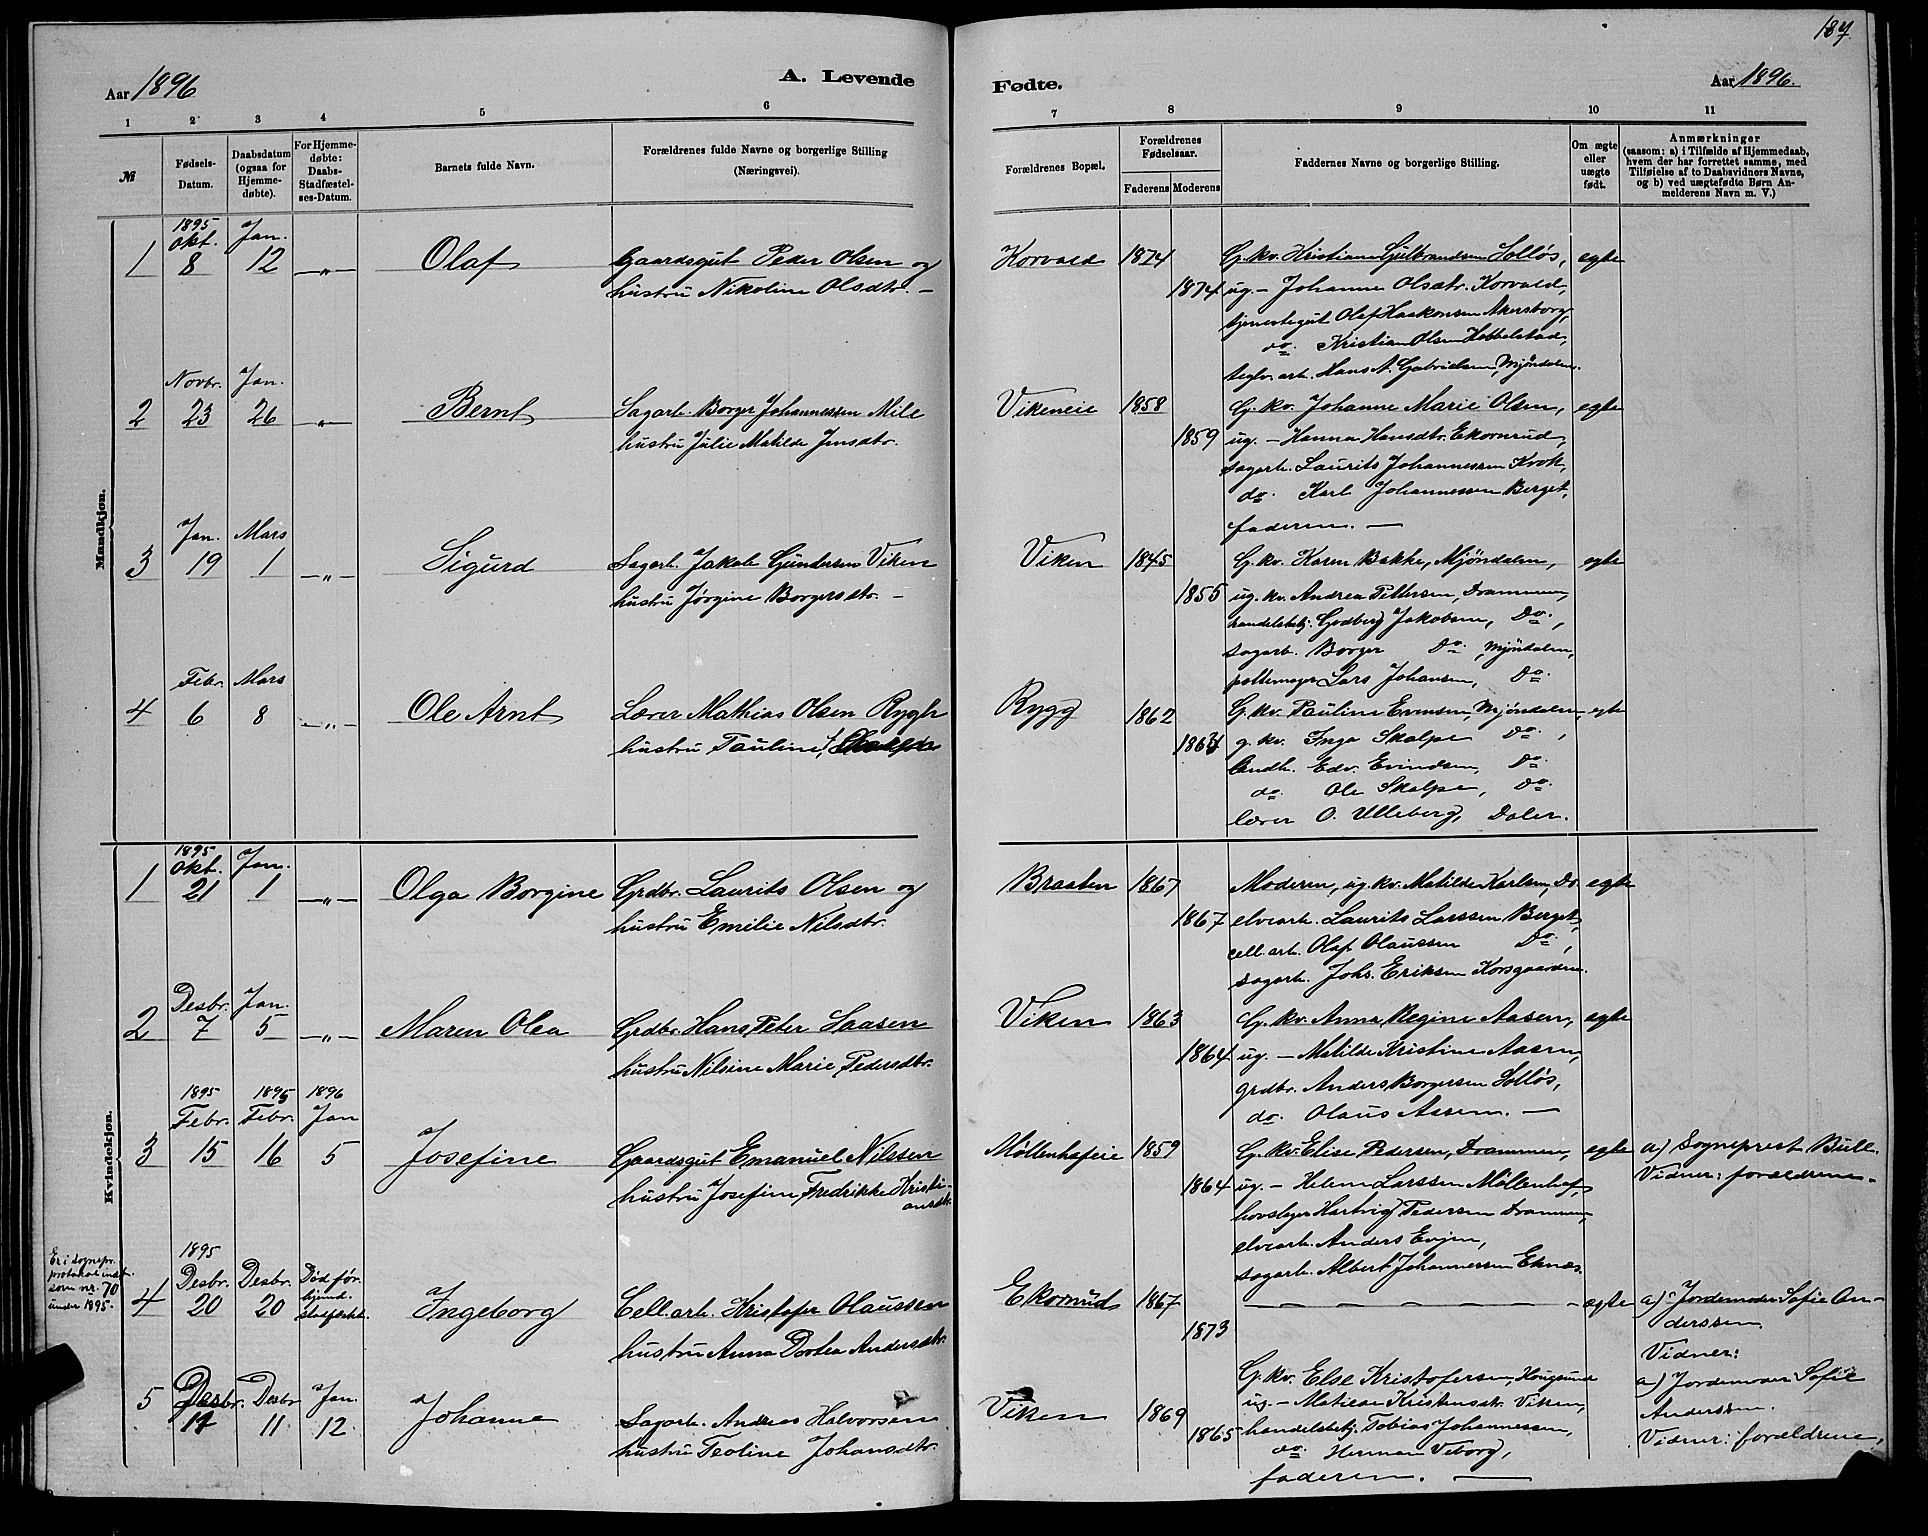 187.
Aar 1896
A. Levende
Fødte.
Aar 1896.
1 2 3 4 5 6
7 8 9 10 11
№
Fødsels-
Datum.
Daabsdatum
(ogsaa for
Hjemme-
døbte).
For Hjemme-
døbte:
Daabs-
Stadfæstel-
ses-Datum.
Barnets fulde Navn.
Forældrenes fulde Navne og borgerlige Stilling
(Næringsvei).
Forældrenes Bopæl.
Forældrenes
Fødselsaar.
Faderens Moderens
Faddernes Navne og borgerlige Stilling.
Om ægte
eller
uægte
født.
Anmærkninger
(saasom: a) i Tilfælde af Hjemmedaab,
hvem der har forrettet samme, med
Tilføielse af to Daabsvidners Navne,
og b) ved uægtefødte Børn An-
melderens Navn m. V.)
Mandkjøn.
1895
Okt. Jan.
1 8 12 —„— Olaf
Gaardsgut Peder Olsen og
hustru Nikoline Olsdtr. —
Korvald 1874
1874
G. kv. Kristiane Gulbrandsen Solløs,
ug. — Johanne Olsdtr. Korvald,
tjenestegut Olaf Haakonsen Akersborg,
do. Kristian Olsen Hobbelstad,
teglv. arb. Hans A. Gabrielsen, Mjøndalen.
egte
Novbr. Jan.
2 23 26 —„— Bernt
Sagarb. Borger Johannessen Mile
hustru Julie Matilde Jensdtr.
Vikeneie 1858
1859
G. kv. Johanne Marie Olsen,
ug. — Hanna Hansdtr. Ekornrud,
sagarb. Laurits Johannessen Krok,
do. Karl Johannessen Berget,
faderen. —
egte
Jan. Mars
3 19 1 —„— Sigurd
Sagarb. Jakob Gundersen Viken
hustru Jørgine Borgersdtr. —
Viken 1845
1855
G. kv. Karen Bakke, Mjøndalen,
ug. kv. Andrea Pettersen, Drammen,
handelsbetj. Godberg Jakobsen, Do.,
sagarb. Borger Do. Mjøndalen,
pottemager Lars Johansen, Do.
egte
Febr. Mars
4 6 8 —„— Ole Arnt
Lærer Mathias Olsen Rygh
hustru Pauline f. Skalpe
Rygg 1862
G. kv. Pauline Evensen, Mjøndalen,
g. kv. Inga Skalpe Do.,
landh. Edv. Evindsen, Do.
do. Ole Skalpe, Do.
lærer O. Ulleberg, Daler.
egte
Kvindekjøn.
1895
Okt. Jan.
1 21 1 —„— Olga Borgine
Grdbr. Laurits Olsen og
hustru Emilie Nilsdtr.
Braaten 1867
1867
Moderen, ug. kv. Matilde Karlsen, Do.
elvearb. Laurits Larssen Berget,
cell. arb. Olaf Olaussen Do.,
sagarb. Johs. Eriksen Korsgaarden.
egte
Desbr. Jan.
2 7 5 —„— Maren Olea
Grdbr. Hans Peter Laasen
hustru Nilsine Marie Pedersdtr.
Viken 1863
1864
G. kv. Anna Regine Aasen,
ug. — Matilde Kristine Aasen,
grdbr. Anders Borgersen Solløs,
do. Olaus Aasen. —
egte
1895 1895 1896
Febr. Febr. Jan
3 15 16 5 Josefine
Gaardsgut Emanuel Nilssen
hustru Josefine Fredrikke Kristi-
ansdtr.
Møllenhofeie 1859
1864
G. kv. Elise Pedersen, Drammen,
ug. — Helene Larssen Møllenhof,
hovslager Hartvig Pedersen Drammen,
elvearb. Anders Evjen,
sagarb. Albert Johannessen Eknæs.
egte
a) Sogneprest Bull.
Vidner: forældrene.
Er i sognepr.
protokol indt.
som nr. 70
under 1895.
1895
Desbr. Desbr. Død før
hjemd.
stadfæstet.
4 20 20 Ingeborg
Cell. arb. Kristofer Olaussen
hustru Anna Dortea Andersdtr.
Ekornrud 1867
1873
— — — — — — — —
egte
a) Jordemoder Sofie An-
derssen.
Vidner:
Desbr. Desbr Jan
5 11 11 12 Johanne
Sagarb. Andreas Halvorsen
hustru Teoline Johansdtr.
Viken 1869
1865
G. kv. Else Kristofersen, Hougsund
ug. — Matilde Kristensdtr. Viken,
handelsbetj. Tobias Johannessen,
do. Herman Viborg,
faderen. —
a) Jordemoder Sofie
Anderssen.
Vidner: forældrene,